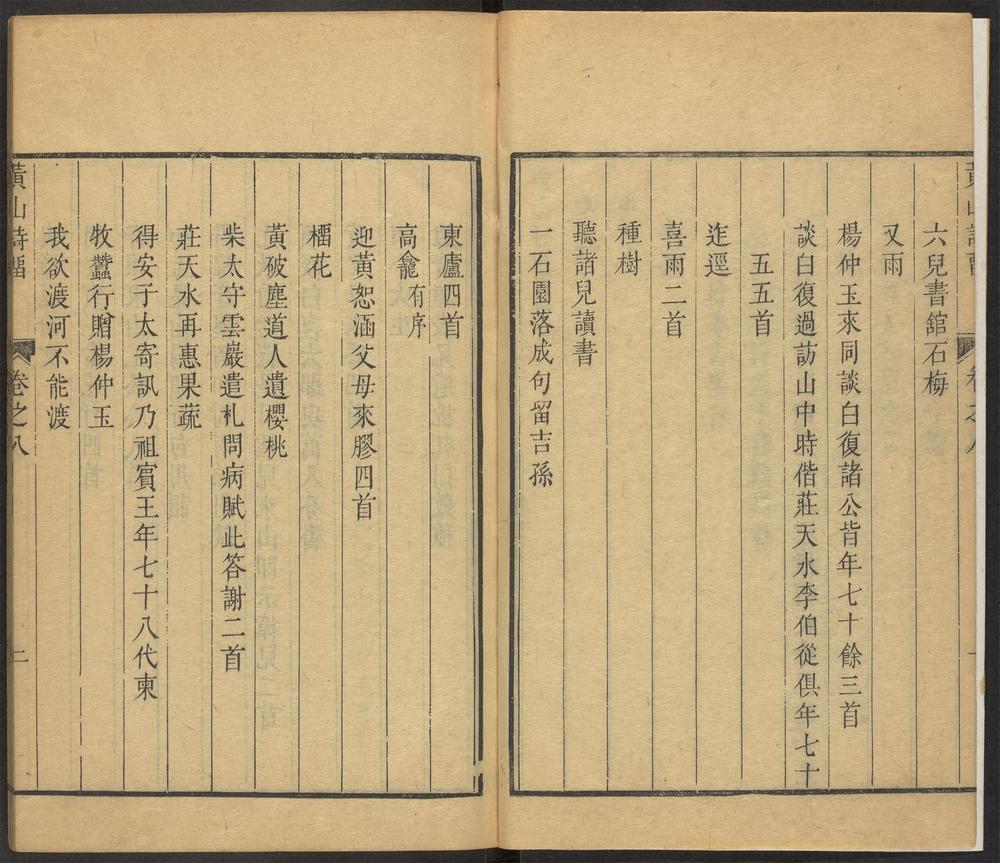 六兒書舘石梅
又雨
楊仲玉來同談白復諸公皆年七十餘三首
談白復過訪山中時偕莊天水李伯從俱年七十
五五首
迮逕
喜雨二首
種樹
聽諸兒讀書
一石園落成句留吉孫
東廬四首
高龕有序
迎黃恕涵父母來膠四首
橊花
黃破塵道人遺櫻桃
柴太守雲巖遣札問病賦此答謝二首
莊天水再惠果蔬
得安子太寄訊乃祖賓王年七十八代柬
牧蠶行贈楊仲玉
我欲渡河不能渡
黃山詩畱 卷之八 二